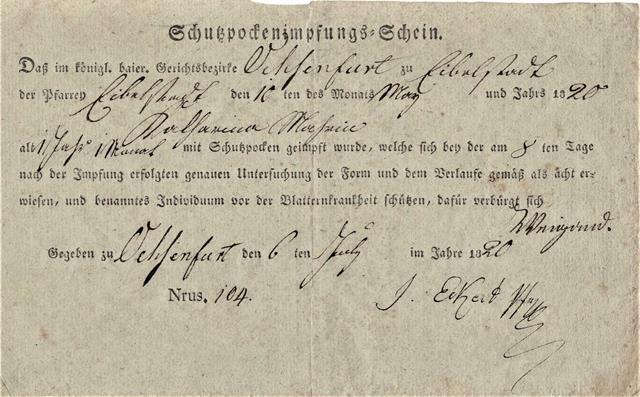 Schutzpockenimpfungs-Schein.
Daß im königl. baier. Gerichtsbezirke Ochsenfurt zu Eibelstadt
der Pfarrey Eibelstadt den 10 ten des Monats May und Jahrs 1820
Katharina
alt 1 Jahr 1 Monat mit Schutzpocken geimpft wurde, welche sich bey der am 8 ten Tage
nach der Impfung erfolgten genauen Untersuchung der Form und dem Verlaufe gemäß als ächt er-
wiesen, und benanntes Individuum vor der Blatternkrankheit schützen, dafür verbürgt sich
Weigand.
Gegeben zu Ochsenfurt den 6 ten July im Jahre 1820
Nrus. 104.
J. Eckert